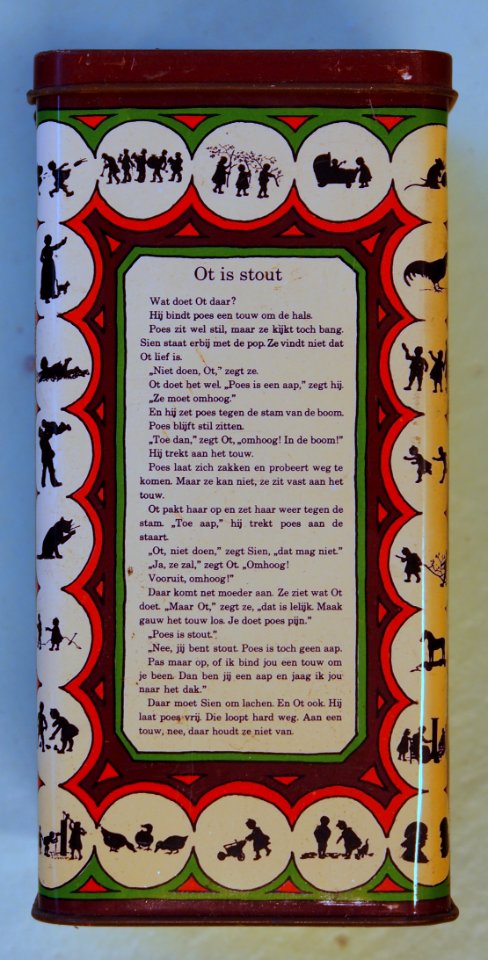 Ot is stout
Wat doet Ot daar?
Hij bindt poes een touw om de hals.
Poes zit wel stil, maar ze kijkt toch bang.
Sien staat erbij met de pop. Ze vindt niet dat
Ot lief is.
„Niet doen, Ot,” zegt ze.
Ot doet het wel. „Poes is een aap,” zegt hij.
„Ze moet omhoog.”
En hij zet poes tegen de stam van de boom.
Poes blijft stil zitten.
„Toe dan,” zegt Ot, „omhoog! In de boom!”
Hij trekt aan het touw.
Poes laat zich zakken en probeert weg te
komen. Maar ze kan niet, ze zit vast aan het
touw.
Ot pakt haar op en zet haar weer tegen de
stam. „Toe aap,” hij trekt poes aan de
staart.
„Ot, niet doen,” zegt Sien, „dat mag niet.”
„Ja, ze zal,” zegt Ot. „Omhoog!
Vooruit, omhoog!”
Daar komt net moeder aan. Ze ziet wat Ot
doet. „Maar Ot,” zegt ze, „dat is lelijk. Maak
gauw het touw los. Je doet poes pijn.”
„Poes is stout.”
„Nee, jij bent stout. Poes is toch geen aap.
Pas maar op, of ik bind jou een touw om
je been. Dan ben jij een aap en jaag ik jou
naar het dak.”
Daar moet Sien om lachen. En Ot ook. Hij
laat poes vrij. Die loopt hard weg. Aan een
touw, nee, daar houdt ze niet van.